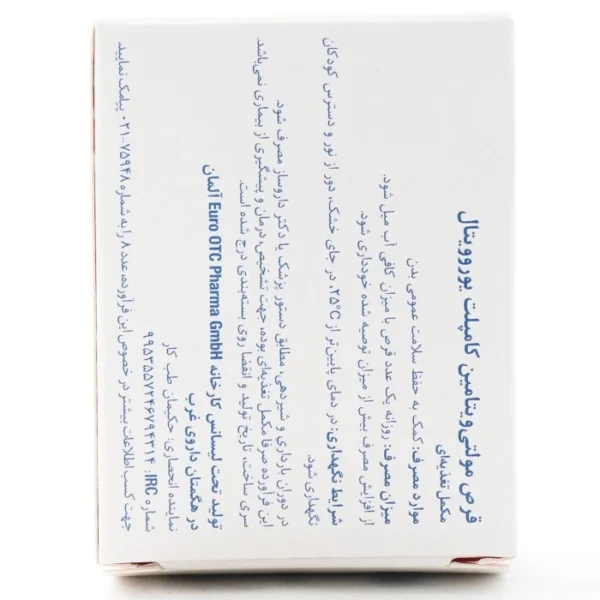 قرص مولتی‌ویتامین کامپلت یوروویتال
مکمل تغذیه‌ای
موارد مصرف: کمک به حفظ سلامت عمومی بدن
میزان مصرف: روزانه یک عدد قرص با میزان کافی آب میل شود.
از افزایش مصرف بیش از میزان توصیه شده خودداری شود.
شرایط نگهداری: در دمای پایین‌تر از ۲۵°C، در جای خشک، دور از نور و دسترس کودکان
نگهداری شود.
در دوران بارداری و شیردهی، مطابق دستور پزشک یا دکتر داروساز مصرف شود.
این فرآورده صرفا مکمل تغذیه‌ای بوده، جهت تشخیص، درمان و پیشگیری از بیماری نمی‌باشد.
سری ساخت، تاریخ تولید و انقضا روی بسته‌بندی درج شده است.
تولید تحت لیسانس کارخانه Euro OTC Pharma GmbH آلمان
در هگمتان داروی غرب
نماینده انحصاری: حکیمان طب کار
شماره IRC: ۹۹۵۳۵۵۷۲۴۶۷۹۴۳۱۴
جهت کسب اطلاعات بیشتر در خصوص این فرآورده، عدد ۸ را به شماره ۷۵۹۴۸-۰۲۱ پیامک نمایید.